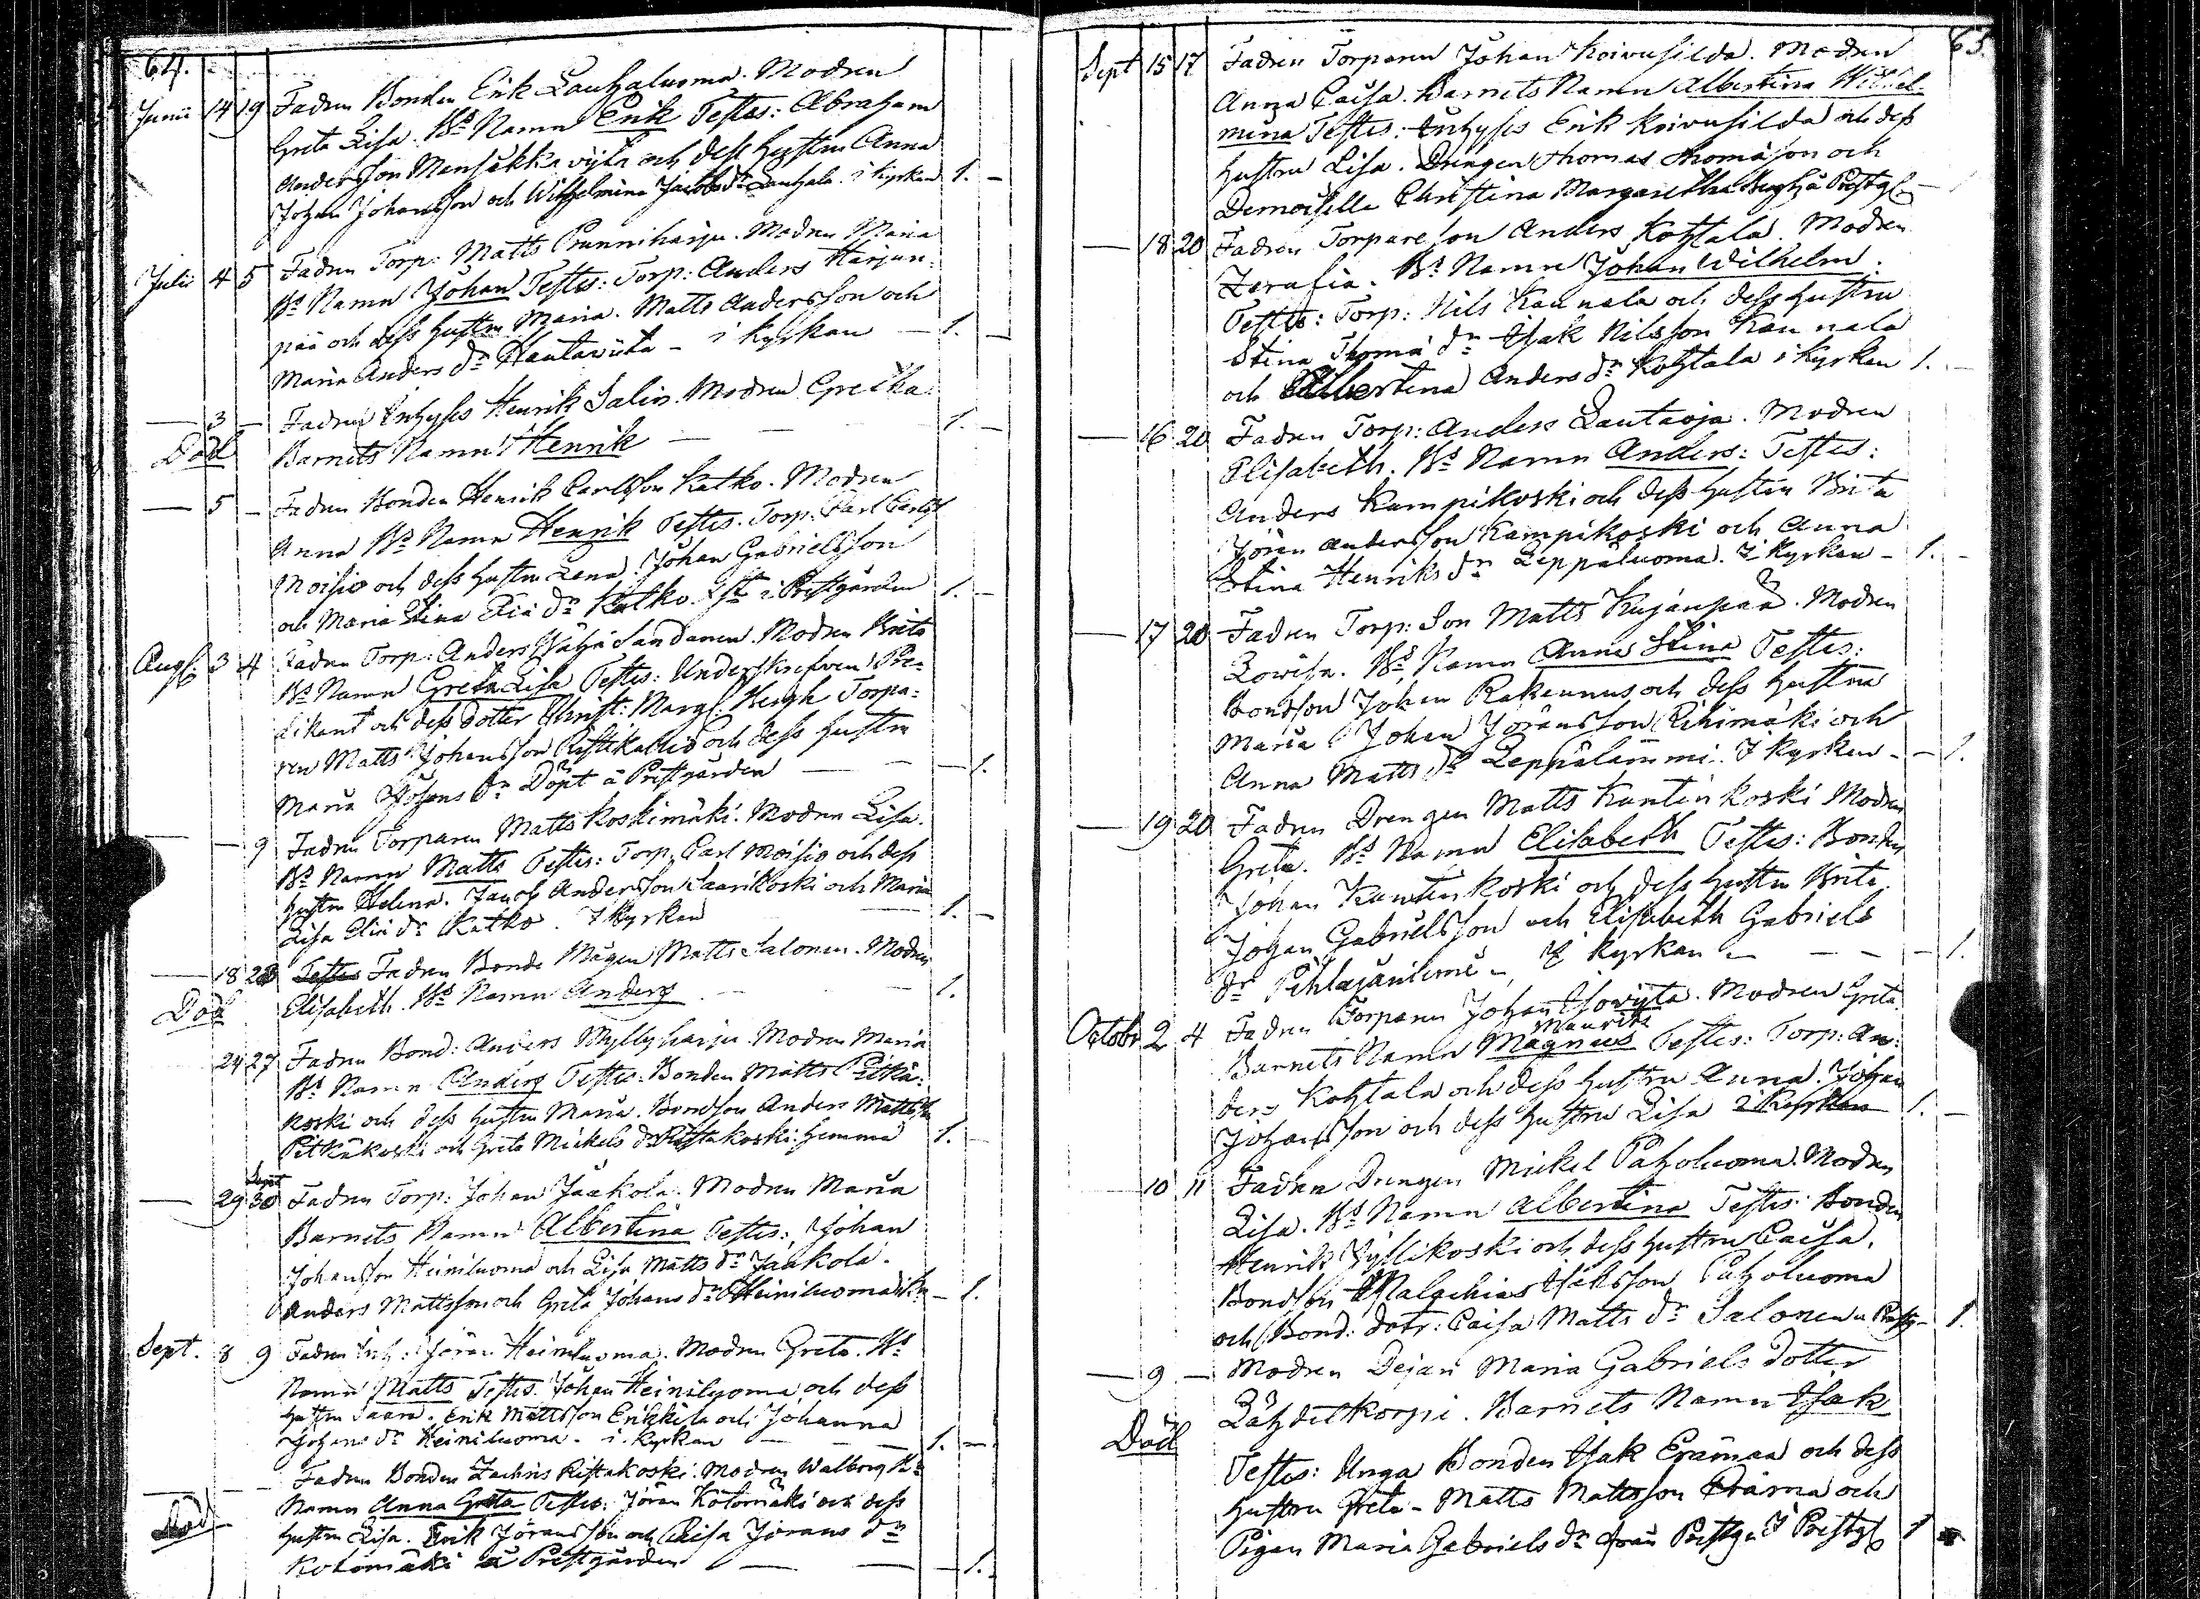 64.
Junii 14 19 Fadren Bonden Erik Lauhaluoma. Modren
Greta Lisa. Bs Namn Erik Testes: Abraham
Andersson Mansikka och dess hustru Anna
Johan Johansson och Wilhelmina Jacobs dr Lauhala i kyrkan 1. -
Julii 4 5 Fadren Torp: Matts Prunniharju. Modren Maria
Bs Namn Johan Testes: Torp: Anders Harjun-
pää och dess hustru Maria. Matts Andersson och
Maria Anders dr Hautaviita - i kyrkan - 1. -
- 3 - Fadren Inhyses Henrik Salin. Modren Gretha
Död Barnets Namn Henrik - - 1. -
- 5 - Fadren Bonden Henrik Carlsson Katko. Modren
Anna Bs Namn Henrik Testes. Torp: Carl Carlss
Moisio och dess hustru Lena. Johan Gabrielsson
och Maria Stina Eliä dr Katko i Prestgården 1. -
Aug 3 4 Fadren Torp: Anders Sandanen. Modren Brita
Bs Namn Greta Lisa Testes: Underskrefven Pre-
dikant och dess dotter Christ: Marg: Bergh Torpa-
ren Matts Johansson Ristikallio och dess hustru
Maria Johans dr Döpt å Prestgården - - 1.
- 9 Fadren Torparen Matts Koskimäki. Modren Lisa.
Bs Namn Matts Testes: Torp. Carl Moisio och dess
hustru Helena. Jacob Andersson Saarikoski och Maria
Lisa Eliä dr Katko. I kyrkan - 1. -
- 18 20 Testes Fadren Bonde Mågen Matts Salonen. Modren
Död Elisabeth. Bs Namn Anders - - 1.
24 27 Fadren Bond: Anders Myllyharju. Modren Maria
Bs Namn Anders Testes: Bonden Matts Pitkä-
koski och dess hustru Maria. Bondson Anders Mattsson
Pitkäkoski och Greta Mickels dr Ristakoski: hemma 1. -
- 29 Sept 30 Fadren Torp: Johan Jaakola. Modren Maria
Barnets Namn Albertina Testes: Johan
Johansson Heiniluoma och Lisa Matts dr Jaakola.
Anders Mattsson och Greta Johans dr Heiniluoma - 1.
Sept. 8 9 Fadren Inh: Jöran Heiniluoma. Modren Greta. Bs
Namn Matts Testes. Johan Heiniluoma och dess
hustru Saara. Erik Mattsson Erkkila och Johanna
Johans dr Heiniluoma. i kyrkan - - 1. -
Fadren Bonden Zachris Ristakoski. Modren Walborg Bs
Död Namn Anna Greta Testes: Jöran Kotomäki och dess
hustru Lisa. Erik Jöransson och Caisa Jörans dr
Kotomäki å Prestgården - - 1.
65.
Sept 15 17 Fadren Torparen Johan Koivusilda. Modren
Anna Caisa. Barnets Namn Albertina Wilhel-
mina Testes: Inhyses Erik Koivusilda och dess
hustru Lisa. Drengen Thomas Thomasson och
Demoiselle Christina Margaretha Bergh å Prestg
- 18 20 Fadren Torpare son Anders Kohtala. Modren
Zerafia. Bs Namn Johan Wilhelm.
Testes: Torp: Nils Kaunala och dess hustru
Stina Thomä dr Isak Nilsson Kaunala
och Albertina Anders dr Kohtala i Kyrkan 1. -
- 16 20 Fadren Torp: Anders Lautaoja. Modren
Elisabeth. Bs Namn Anders: Testes:
Anders Kampikoski och dess hustru Brita
Jören Andersson Kampikoski och Anna
Stina Henriks dr Leppäluoma. I kyrkan - 1. -
- 17 20 Fadren Torp: Son Matts Kujanpää. Modren
Lowisa. Bs Namn Anna Stina Testes:
Bondson Johan Rakennus och dess hustru
Maria. Johan Jöransson Riihimäki och
Anna Matts dr Leppälammi. I kyrkan - - 1.
- 19 20 Fadren Drengen Matts Kantinkoski Modren
Greta. Bs Namn Elisabeth Testes: Bonden
Johan Kantinkoski och dess hustru Brita.
Johan Gabrielsson och Elisabeth Gabriels
dr Pihlajaniemi - I kyrkan - - - 1.
Octobr 2 4 Fadren Torparen Johan Isowiita. Modren Greta
Mauritz
Barnets Namn Magnus Testes: Torp: An-
ders Kohtala och dess hustru Anna. Johan
Johansson och dess hustru Lisa i Kyrkan 1. -
10 11 Fadren Drengen Mickel Paholuoma. Modren
Lisa. Bs Namn Albertina Testes: Bonden
Henrik Kyllikoski och dess hustru Caisa.
Bondson Malachias Isaksson Paholuoma
och Bond: dotr: Caisa Matts dr Salonen å Prestg - 1.
- 9 - Modren Pejan Maria Gabriels dotter
Död Lähdetkorpi. Barnets Namn Isak
Testes: Unga Bonden Isak Erämaa och dess
hustru Greta - Matts Mattsson Erämaa och
Pigan Maria Gabriels dr från Prestg. I Prestg 1